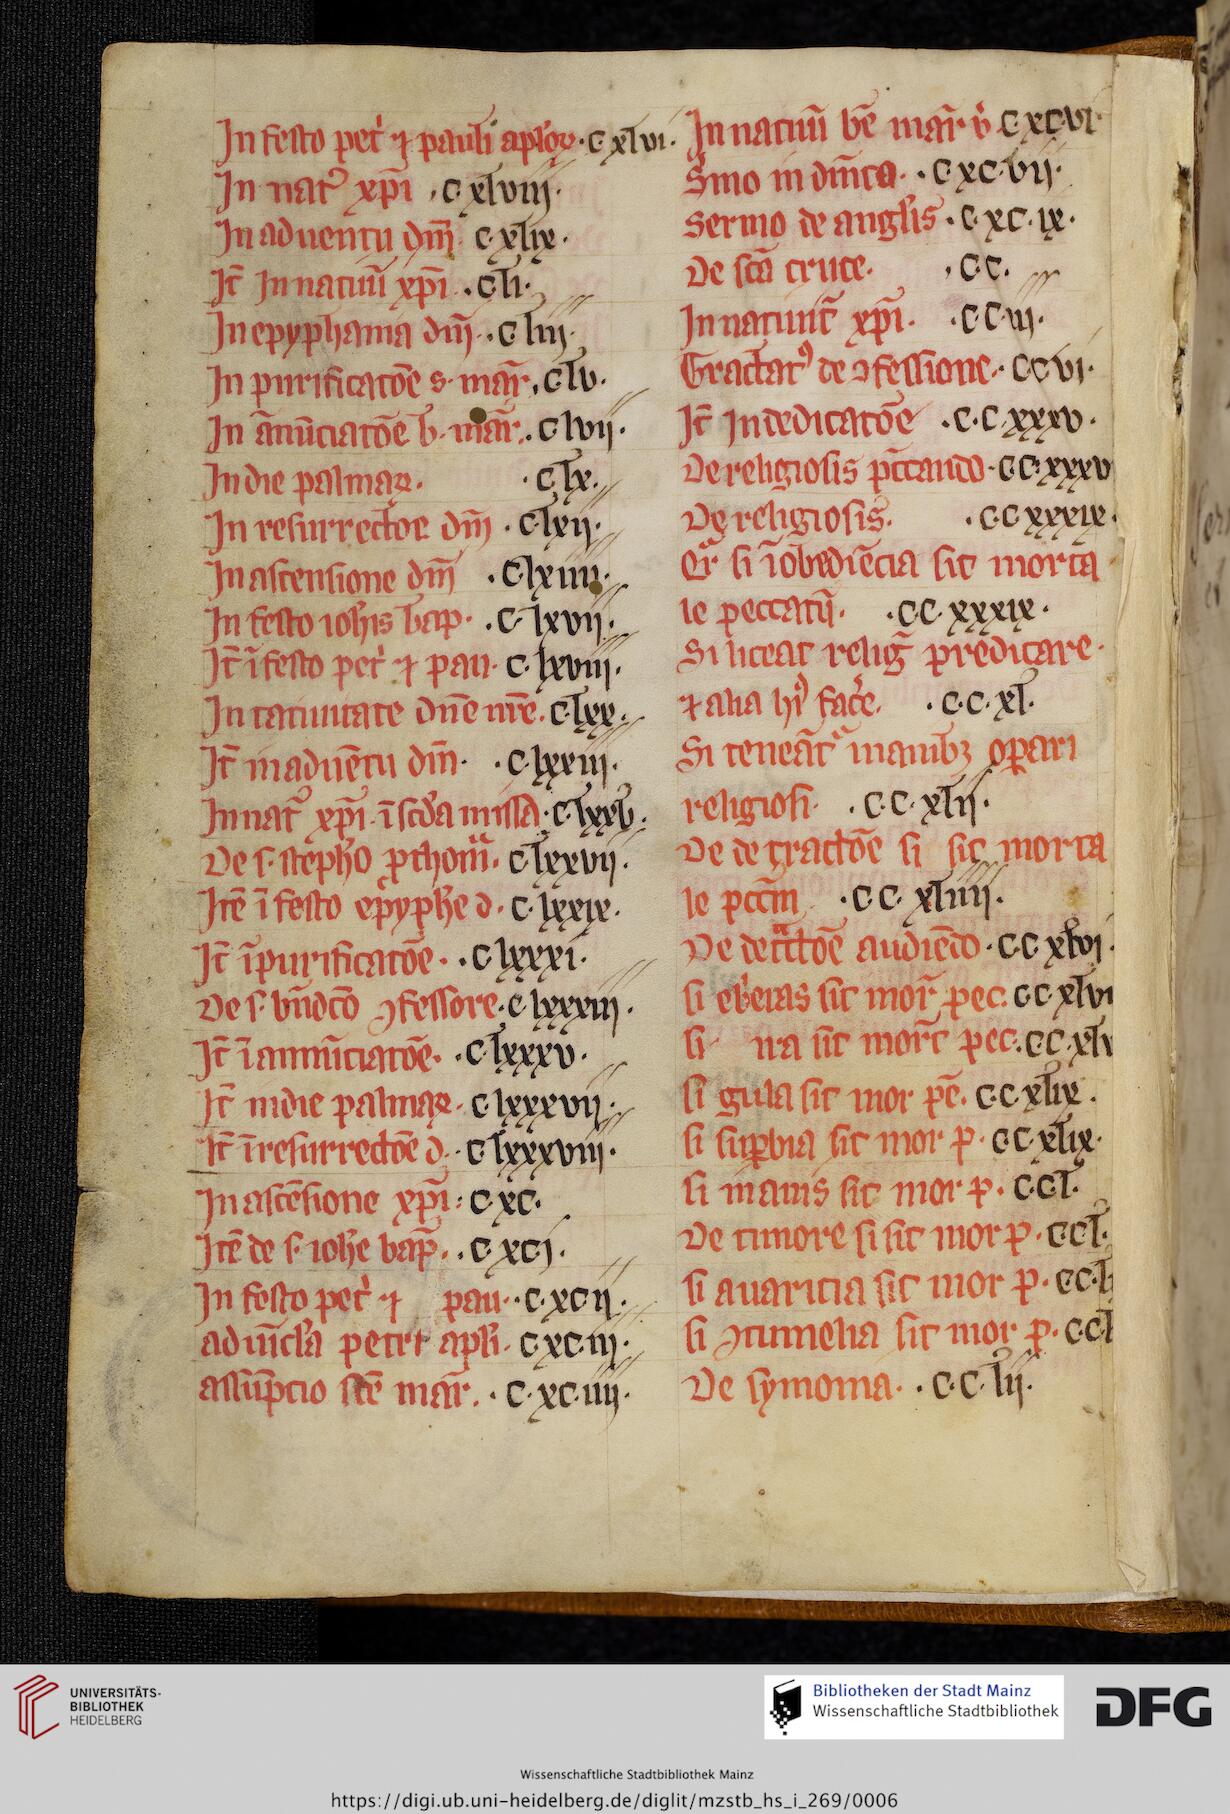 In festo pet᷑ ⁊ pauli aplõꝝ · c xlvi ·
In nat᷑ xp̄i · c xlviii ·
In aduentu dn̄i · c xlix ·
It᷑ In natiuı̄ xp̄i · c li ·
In epyphania dn̄i · c liii ·
In purificatōe s · mar̄ · c lv ·
In ānūciatōe b̄ · mar̄ · c lvii ·
In die palmaꝝ · · c lx ·
In resurrectōe dn̄i · c lxii ·
In ascensione dn̄i · c lxiiii ·
In festo ioh̄is bap̄ · c lxvii ·
It᷑ ı̄ festo pet᷑ ⁊ pau · c lxviii ·
In natiuitate dn̄e nr̄e · c lxx ·
It᷑ in aduētu dn̄i · · c lxxiii ·
In nat᷑ xp̄i · ı̄ scd̄a missa · c lxxv ·
De s · steph̄o ꝓthom̄ · c lxxvii ·
Itē ı̄ festo epyph̄e d · c lxxix ·
It᷑ ı̄ purificatōe · c lxxxi ·
De s · bn̄dcō ꝯfessore · c lxxxiii ·
It᷑ ı̄ annūciatōe · c lxxxv ·
It᷑ in die palmaꝝ · c lxxxvii ·
It᷑ ı̄ resurrectōe d · c lxxxviii ·
In ascēsione xp̄i · c xc ·
Itē de s · ioh̄e bap̄ · c xci ·
In festo pet᷑ ⁊ pau · c xcii ·
ad uı̄cl̄a petri apl̄i · c xc iii ·
assūpcio scē mar̄ · c · xc iiii ·
In natiuı̄ bē mar̄ v̄ c xc vi ·
S̄mo in dn̄ica · c xc vii ·
Sermo de angl̄is · c · xc · ix ·
De scā cruce · · c c ·
In natiuit᷑ xp̄i · · c c iii ·
Tractat᷒ de ꝯfessione · cc vi ·
It᷑ In dedicatōe · c · c xxxv ·
De religiosis p̄ctando · cc xxxv
De religiosis · · c c xxxix ·
Qr̄ si ı̄obediēcia sit morta
le peccatū · · c c xxxix ·
Si liceat relig̅ predicare ·
⁊ alia hi᷒ fac̄e · · c · c · xl ·
Si teneāt᷑ manibꝫ oꝑari
religiosi · · c · c · xlii ·
De detractōe si sit morta
le pcc̄m · c c · xliiii ·
De detctōe audiēdo · c c xlvi ·
si eb̄etas sit mor̄ pec · c c xlvi
si ira sit mort̄ pec · c c xlv
si gula sit mor pē · c c xlix ·
si suꝑbia sit mor p · c c xlix ·
si inanis sit mor p · c c l ·
De timore si sit mor p · c c l ·
si auaricia sit mor p · c c l
si ꝯtumelia sit mor p · c c l
De symonia · · c · c · lii ·
UNIVERSITÄTS-
BIBLIOTHEK
HEIDELBERG
Bibliotheken der Stadt Mainz
Wissenschaftliche Stadtbibliothek
DFG
Wissenschaftliche Stadtbibliothek Mainz
https://digi.ub.uni-heidelberg.de/diglit/mzstb_hs_i_269/0006